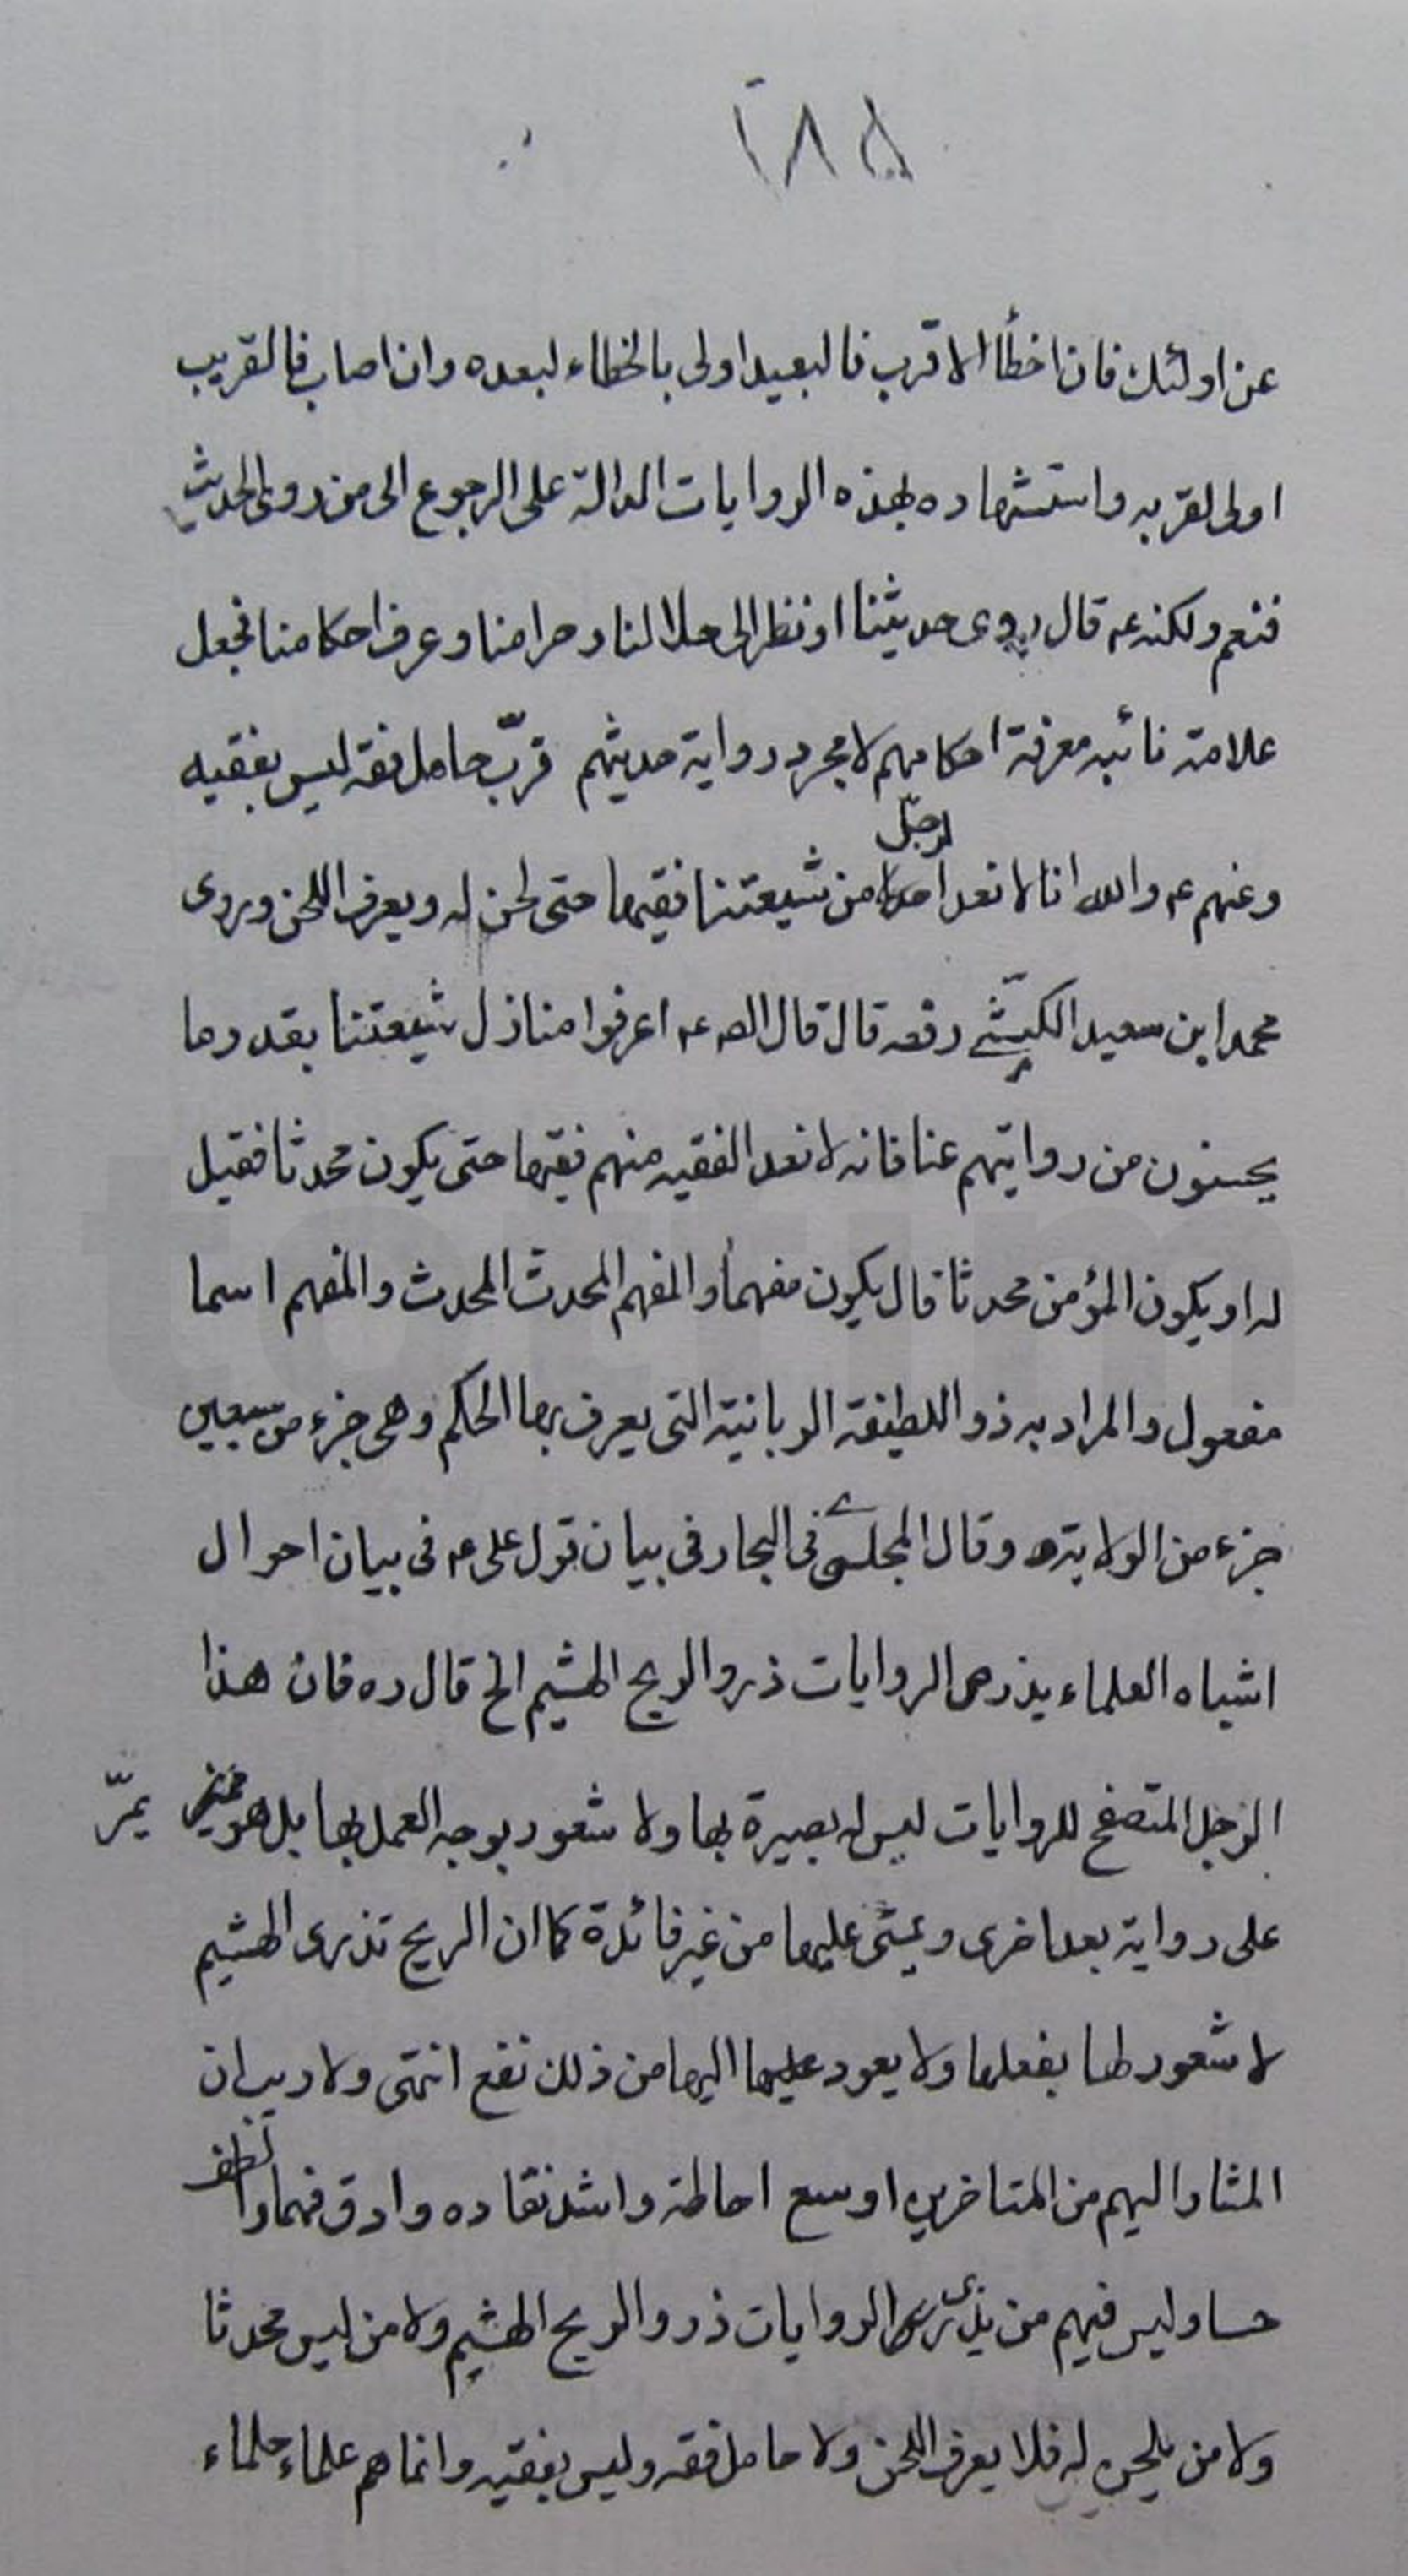 ٢٨٥
عن اولئك فان اخطأ الاقرب فالبعيد اولى بالخطاء لبعده وان اصاب فالقريب
اولى لقربه واستشهاده بهذه الروايات الدالة على الرجوع الى من روى الحديث
فنعم ولكنه عـ قال روى حديثنا او نظر الى حلالنا وحرامنا وعرف احكامنا فجعل
علامة نائبه معرفة احكامهم لا مجرد رواية حديثهم فربّ حامل فقه ليس بفقيه
وعنهم عـ والله انا لا نعد الرجل من شيعتنا فقيها حتى يلحن له ويعرف اللحن وروى
محمد ابن سعيد الكشّي رفعه قال قال الصـ عـ اعرفوا منازل شيعتنا بقدر ما
يحسنون من روايتهم عنا فانه لا نعد الفقيه منهم فقيها حتى يكون محدثا فقيل
له او يكون المؤمن محدثا قال يكون مفهما والمفهم المحدث المحدث والمفهم اسما
مفعول والمراد به ذو اللطيفة الربانية التى يعرف بها الحكم وهى جزء من سبعين
جزء من الولاية وقال المجلسى فى البحار فى بيان قول على عـ فى بيان احوال
اشباه العلماء يذرى الروايات ذرو الريح الهشيم الخ قال ره فان هذا
الرجل المتصفح للروايات ليس له بصيرة بها ولا شعور بوجه العمل بها بل هو يمرّ
على رواية بعد اخرى ويمشى عليها من غير فائدة كما ان الريح تذرى الهشيم
لا شعور لها بفعلها ولا يعود اليها من ذلك نفع انتهى ولا ريب ان
المشار اليهم من المتاخرين اوسع احاطة واشد نقاده وادق فهما والطف
حسا وليس فيهم من يذرى الروايات ذرو الريح الهشيم ولا من ليس محدثا
ولا من يلحن له فلا يعرف اللحن ولا حامل فقه وليس بفقيه وانما هم علماء حلماء